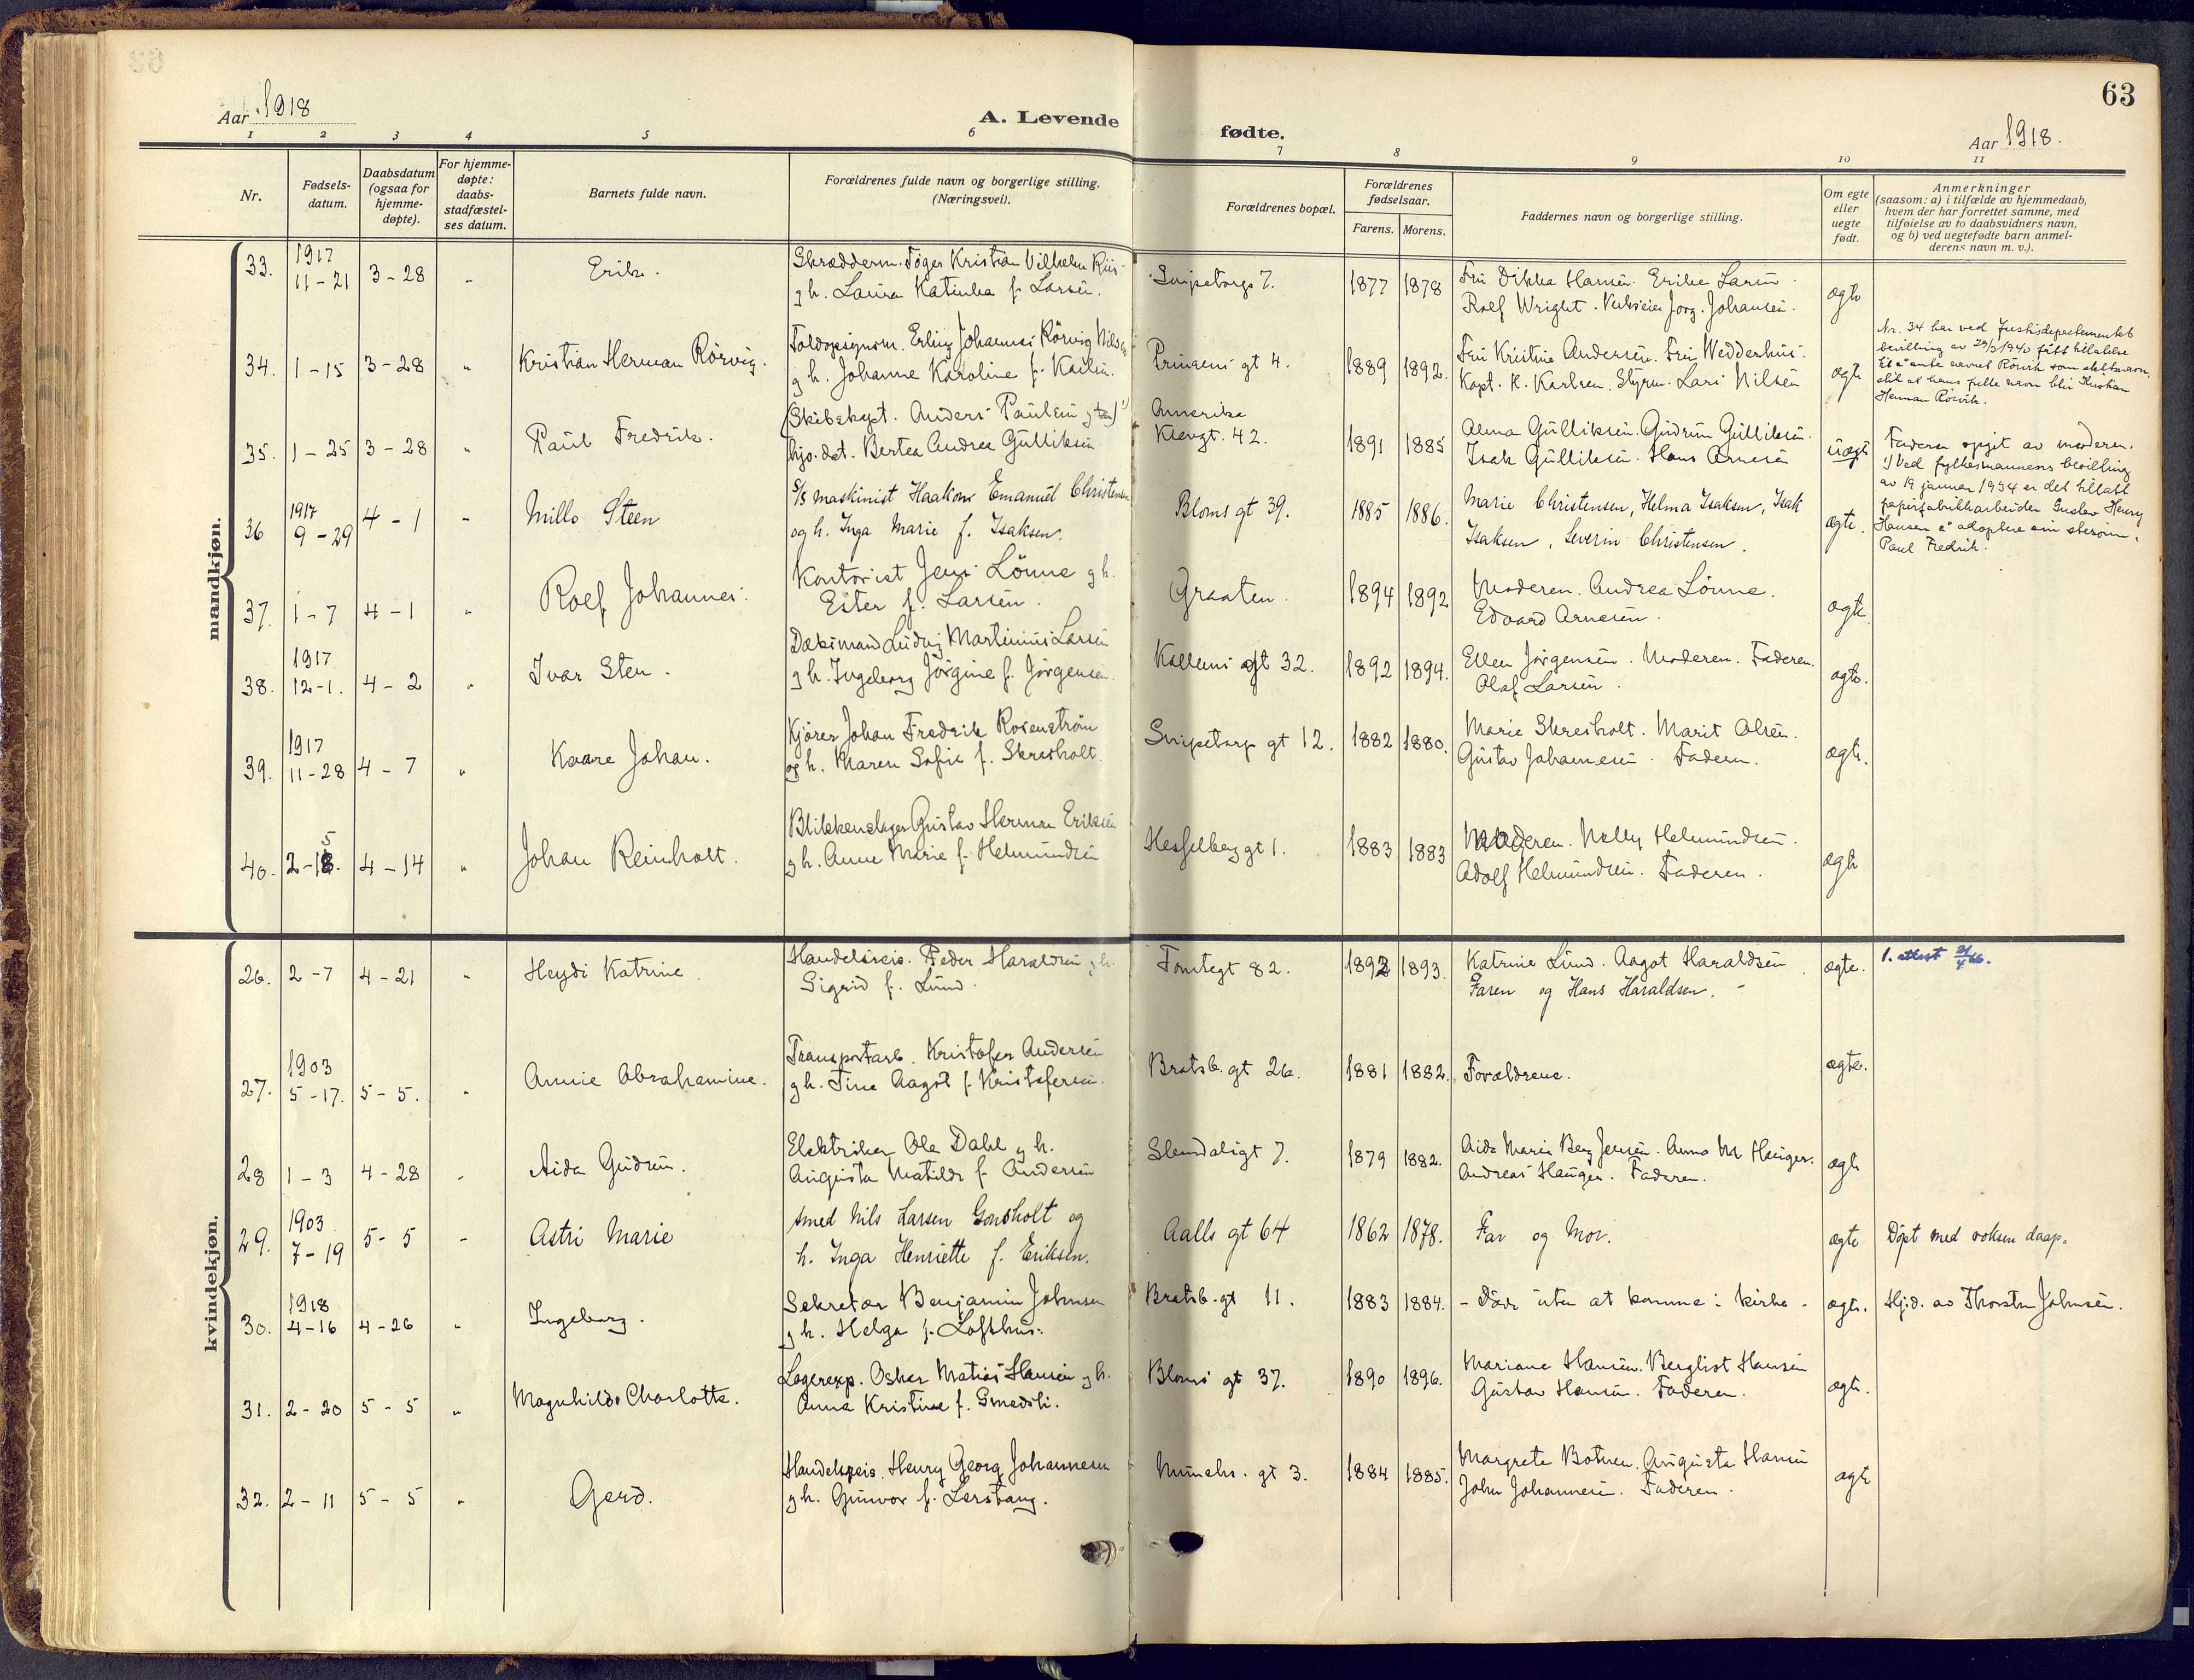 63
Aar 1918
A. Levende
fødte.
Aar 1918.
1 2 3 4 5 6 7 8 9 10 11
Nr.
Fødsels-
datum.
Daabsdatum
(ogsaa for
hjemme-
døpte).
For hjemme-
døpte:
daabs-
stadfæstel-
ses datum.
Barnets fulde navn.
Forældrenes fulde navn og borgerlige stilling.
(Næringsvei).
Forældrenes bopæl.
Forældrenes
fødselsaar.
Farens. Morens.
Faddernes navn og borgerlige stilling.
Om egte
eller
uegte
født.
Anmerkninger
(saasom: a) i tilfælde av hjemmedaab,
hvem der har forrettet samme, med
tilføielse av to daabsvidners navn,
og b) ved uegtefødte barn anmel-
derens navn m. v.).
mandkjøn.
33. 1917 11-21 3-28 " Erik.
Skrædderm. Tøger Kristian Vilhelm Riis
g h. Laura Katinka f. Larsen.
Snipetorpg 7. 1877 1878
Fru Dikka Hansen. Erikke Larsen.
Rolf Wright. Verkseier Jørg. Johansen.
ægte
34. 1-15 3-28 " Kristian Herman Rörvig.
Toldopsynsm. Erling Johannes Rörvig Nilsen
g h. Johanne Karoline f. Karlsen.
Prinsens gt 4. 1889 1892.
Fru Kristine Andersen. Fru Wedderhus.
Kapt. K. Karlsen. Styrm. Lars Nilsen
ægte
Nr. 34 har ved Justisdepartementets
bevilling av 29/3 1940 fått tillatelse
til å anta navnet Rörvik som slektsnavn,
slik at hans fulle navn blir Kristian
Herman Rörvik.
35. 1-25 3-28 " Paul Fredrik.
(Skibskapt. Anders Paulsen g ) 1)
hjv. dat. Bertea Andrea Gulliksen
Amerika
Klevgt. 42. 1891 1885
Alma Gulliksen. Gudrun Gulliksen.
Isak Gulliksen. Hans Arnesen
uægte
Faderen opgit av moderen.
1) Ved fylkesmannens bevilling
av 19 januar 1934 er det tillatt
papirfabrikkarbeider Gustav Henry
Hansen å adoptere sin stesønn,
Paul Fredrik.
36 1917 9-29 4-1 " Millo Steen
S/S maskinist Haakon Emanuel Christensen
og h. Inga Marie f. Isaksen.
Bloms gt 39. 1885 1886.
Marie Christensen, Helma Isaksen, Isak
Isaksen, Severin Christensen.
ægte.
37. 1-7 4-1 " Rolf Johannes.
Kontorist Jens Lönne g h.
Ester f. Larsen.
Graaten. 1894 1892
Moderen. Andrea Lönne.
Edvard Arnesen.
ægte
38. 1917 12-1. 4-2 " Ivar Sten.
Dæksmand Ludvig Martinius Larsen
g h. Ingeborg Jörgine f. Jörgensen.
Kallums gt 32. 1892 1894.
Ellen Jörgensen. Moderen. Faderen.
Olaf Larsen.
ægte.
39. 1917 11-28 4-7 " Kaare Johan.
Kjører Johan Fredrik Rosenström
og h. Maren Sofie f. Skreiholt.
Snipetorp gt 12. 1882 1880.
Marie Skreiholt. Marit Olsen.
Gustav Johannesen. Faderen.
ægte.
40. 2-15 4-14 " Johan Reinholt.
Blikkenslager Gustav Herman Eriksen
g h. Anne Marie f. Helmundsen
Hesselberg gt 1. 1883 1883
Moderen. Nelly Helmundsen.
Adolf Helmundsen. Faderen.
ægte
kvindekjøn.
26. 2-7 4-21 " Heydi Katrine
Handelsreis. Peder Haraldsen g h.
Sigrid f. Lund.
Tomtegt 82. 1892 1893.
Katrine Lund. Aagot Haraldsen
Faren og Hans Haraldsen.
ægte.
1. attest 21/4 66.
27. 1903 5-17. 5-5. " Annie Abrahamine.
Transportarb. Kristofer Andersen
g h. Tine Aagot f. Kristofersen.
Bratsb. gt 26. 1881 1882. Forældrene. ægte.
28 1-3 4-28 " Aida Gudrun.
Elektriker Ole Dahl g h.
Augusta Matilde f. Andersen
Slemdalsgt 7. 1879 1882.
Aida Marie Berg Jensen. Anna M Hauger.
Andreas Hauger. Faderen.
ægte
29. 1903 7-19 5-5 " Astri Marie
Smed Nils Larsen Gonsholt og
h. Inga Henriette f. Eriksen.
Aalls gt 64 1862 1878. Far og Mor. ægte Döpt med voksen daap.
30. 1918 4-16 4-26 " Ingeborg.
Sekretær Benjamin Johnsen
g h. Helga f. Lofthus.
Bratsb. gt 11. 1883 1884. - Döde uten at komme i kirke - ægte. Hj.d. av Thorstn Johnsen.
31. 2-20 5-5 " Magnhild Charlotte.
Lagerexp. Oskar Matias Hansen g h.
Anna Kristine f. Smedsli.
Bloms gt 37. 1890 1896.
Mariane Hansen. Bergliot Hansen
Gustav Hansen. Faderen.
ægte.
32. 2-11 5-5 " Gerd.
Handelsreis. Henry Georg Johannesen
g h. Gunvor f. Lerstang.
Munchs. gt 3. 1884 1885.
Margrete Botnen. Augusta Hansen
John Johannesen. Faderen.
ægte